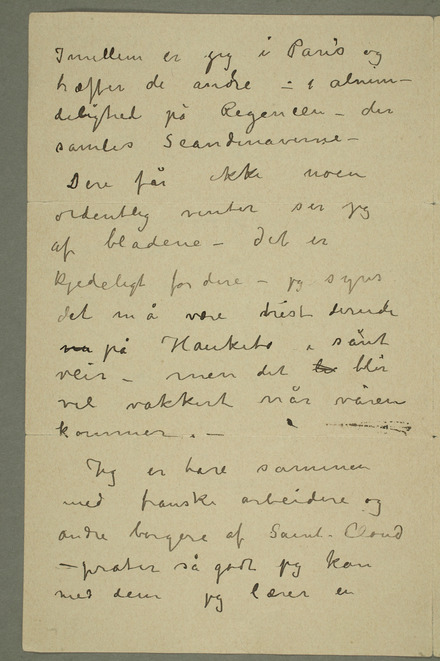 Imellem er jeg i Paris og
træffer de andre – i almin-
delighed på Regencen – der
samles Scandinaverne –
Dere får ikke noen
ordentlig vinter ser jeg
af bladene – det er
kjedeligt for dere – jeg synes
det må være trist derude
på Hauketo i sånt
veir – men det blir
vel vakkert når våren
kommer. –
Jeg er bare sammen
med franske arbeidere og
andre borgere af Saint-Cloud
– prater så godt jeg kan
med dem jeg lærer en